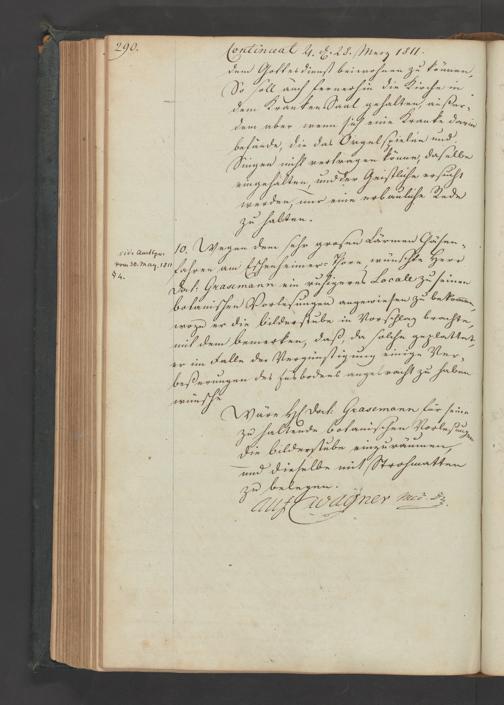 290.
Continuat 4. d. 28. Merz 1811.
dem Gottesdienst beiwohnen zu können.
So soll auch fernerhin die Kirche in
dem Kranken Saal gehalten, außer-
dem aber wenn sich eine Kranke darin
befände, die das Orgelspielen und
Singen nicht vertragen könne, daselbe
eingehalten, und der Geistliche ersucht
werden, nur eine erbauliche Rede
zu halten.
vid.
vom 30. May 1811
§ 4.
10. Wegen dem sehr großen Lärmen
fahren am Eschenheimer-Thore wünschte Herr
Doct: Grasemann ein ruhigeres Locale zu seinen
botanischen Vorlesungen angewiesen zu bekommen,
wozu er die bilderstube in Vorschlag brachte,
mit dem bemerken, daß, da solche geplattet
er im Falle der Vergünstigung einige Ver-
beßerungen des Fusbodens angebracht zu haben
wünsche
Wäre H Doct. Grasemann für seine
zu haltende botanischen Vorlesungen
die bilderstube einzuräumen,
und dieselbe mit Strohmatten
zu belegen.
Wagner